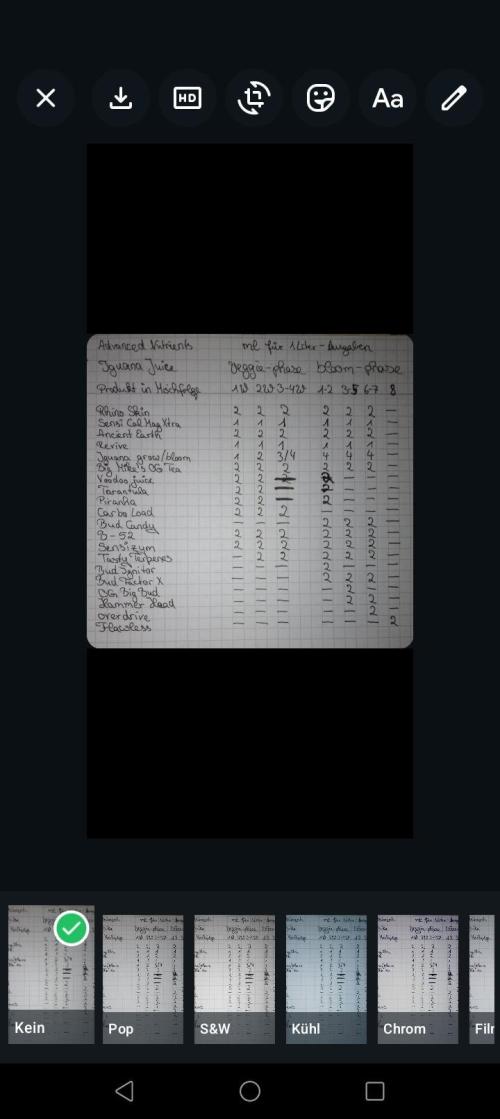 HD
Aa
Advanced Nutrients ml für 1 Liter - Angaben
Iguana Juice Veggie-phase bloom-phase
Produkt in Mischfolge 1W 2W 3-4W 1-2 3-5 6-7 8
Rhino Skin 2 2 2 2 2 2 —
Sensi Cal Mag Xtra 1 1 1 1 1 1 —
Ancient Earth 2 2 2 2 2 2 —
Revive 1 1 1 1 1 1 —
Iguana grow/bloom 1 2 3/4 4 4 4 —
Big Mike's OG Tea 2 2 2 2 2 2 —
Voodoo juice 2 2 — 2 — — —
Tarantula 2 2 — 2 — — —
Piranha 2 2 — 2 — — —
Carbo Load 2 2 2 — — — —
Bud Candy — — — 2 2 2 —
B-52 2 2 2 2 2 2 —
Sensizym 2 2 2 2 2 2 —
Tasty Terpenes — 2 2 2 2 2 —
Bud Ignitor — — — 2 — — —
Bud Factor X — — — 2 2 2 —
OG Big Bud — — — — 2 — —
Hammer Head — — — — 2 2 —
overdrive — — — — — 2 —
Flawless — — — — — — 2
Kein
Pop
S&W
Kühl
Chrom